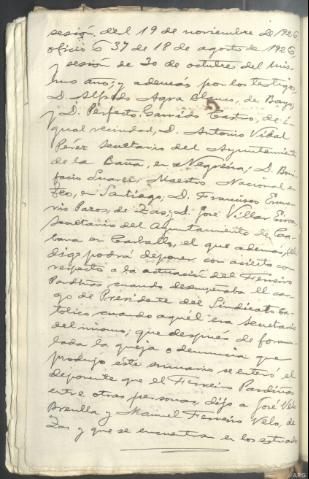 sesión, del 19 de noviembre de 1926
oficio 637 de 18 de agosto de 1926
y sesión de 30 de octubre del mis-
mo año; y además por los testigos,
D. Alfredo Agra Blanco, de Bayo,
y D. Perfecto Garrido Castro, de i-
gual vecindad, D. Antonio Vidal
Pérez secretario del Ayuntamiento
de la Baña, en Negreira; D. Boni-
facio Maestro Nacional en
en Santiago; D. Francisco
Pazos, de Zas; D. José Villar
secretario del Ayuntamiento de Ca-
bana en Carballo, el que además
podrá deponer con acierto con
respecto a la actuación del Ferreiro
Pardiñas cuando desempeñaba el car-
go de Presidente del Sindicato Ca-
tólico cuando aquél era secretario
del mismo; que después de formu-
lada la queja o denuncia que
produjo este sumario se enteró el
deponente que el Ferreiro Pardiñas
entre otras personas, dijo a José Velo
Brenlla y Manuel Ferreiro Velo, de
Zas y que se encuentra en los estrados